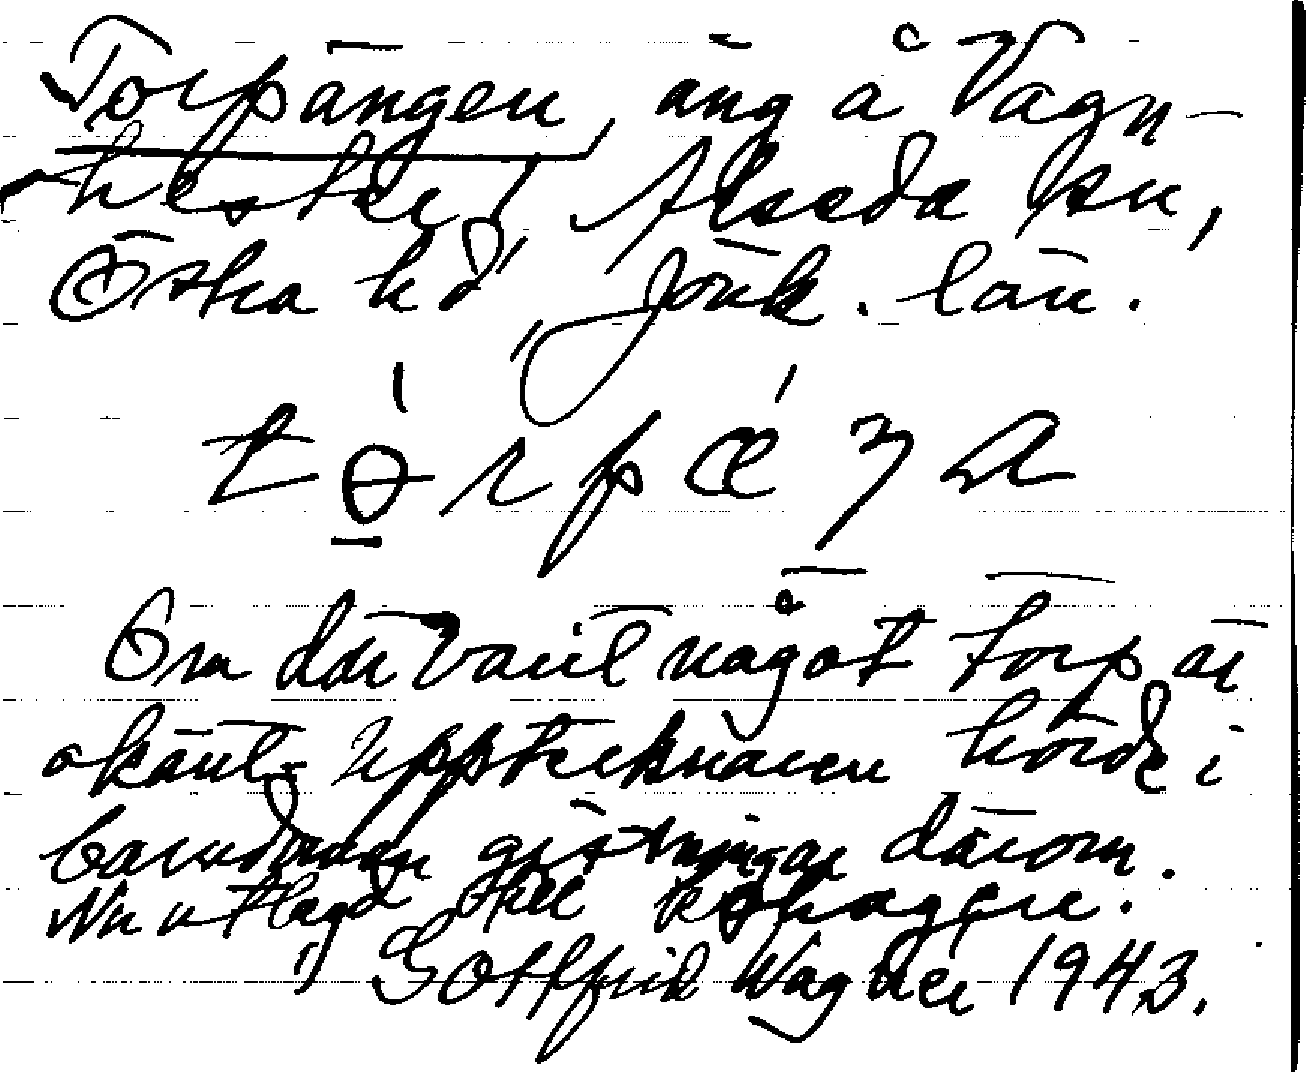 Torpängen, äng å Vagn-
hester, Alseda sn,
Östra hd, Jönk. län.
tɵ̱́rpǽŋa
Om där varit något torp är
okänt. Upptecknaren hörde i
barndomen gissningar därom.
Nu utlagd till kohagen.
Gottfrid Wagnér 1943.